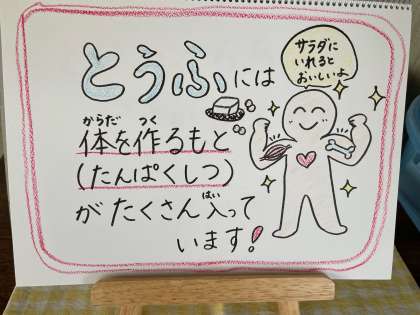 とうふには
体を作るもと
(たんぱくしつ)
がたくさん入って
います!
サラダに
いれると
おいしいよ
からだ
つく
はい